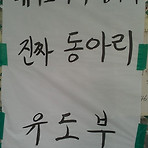 진짜 동아리
유도부